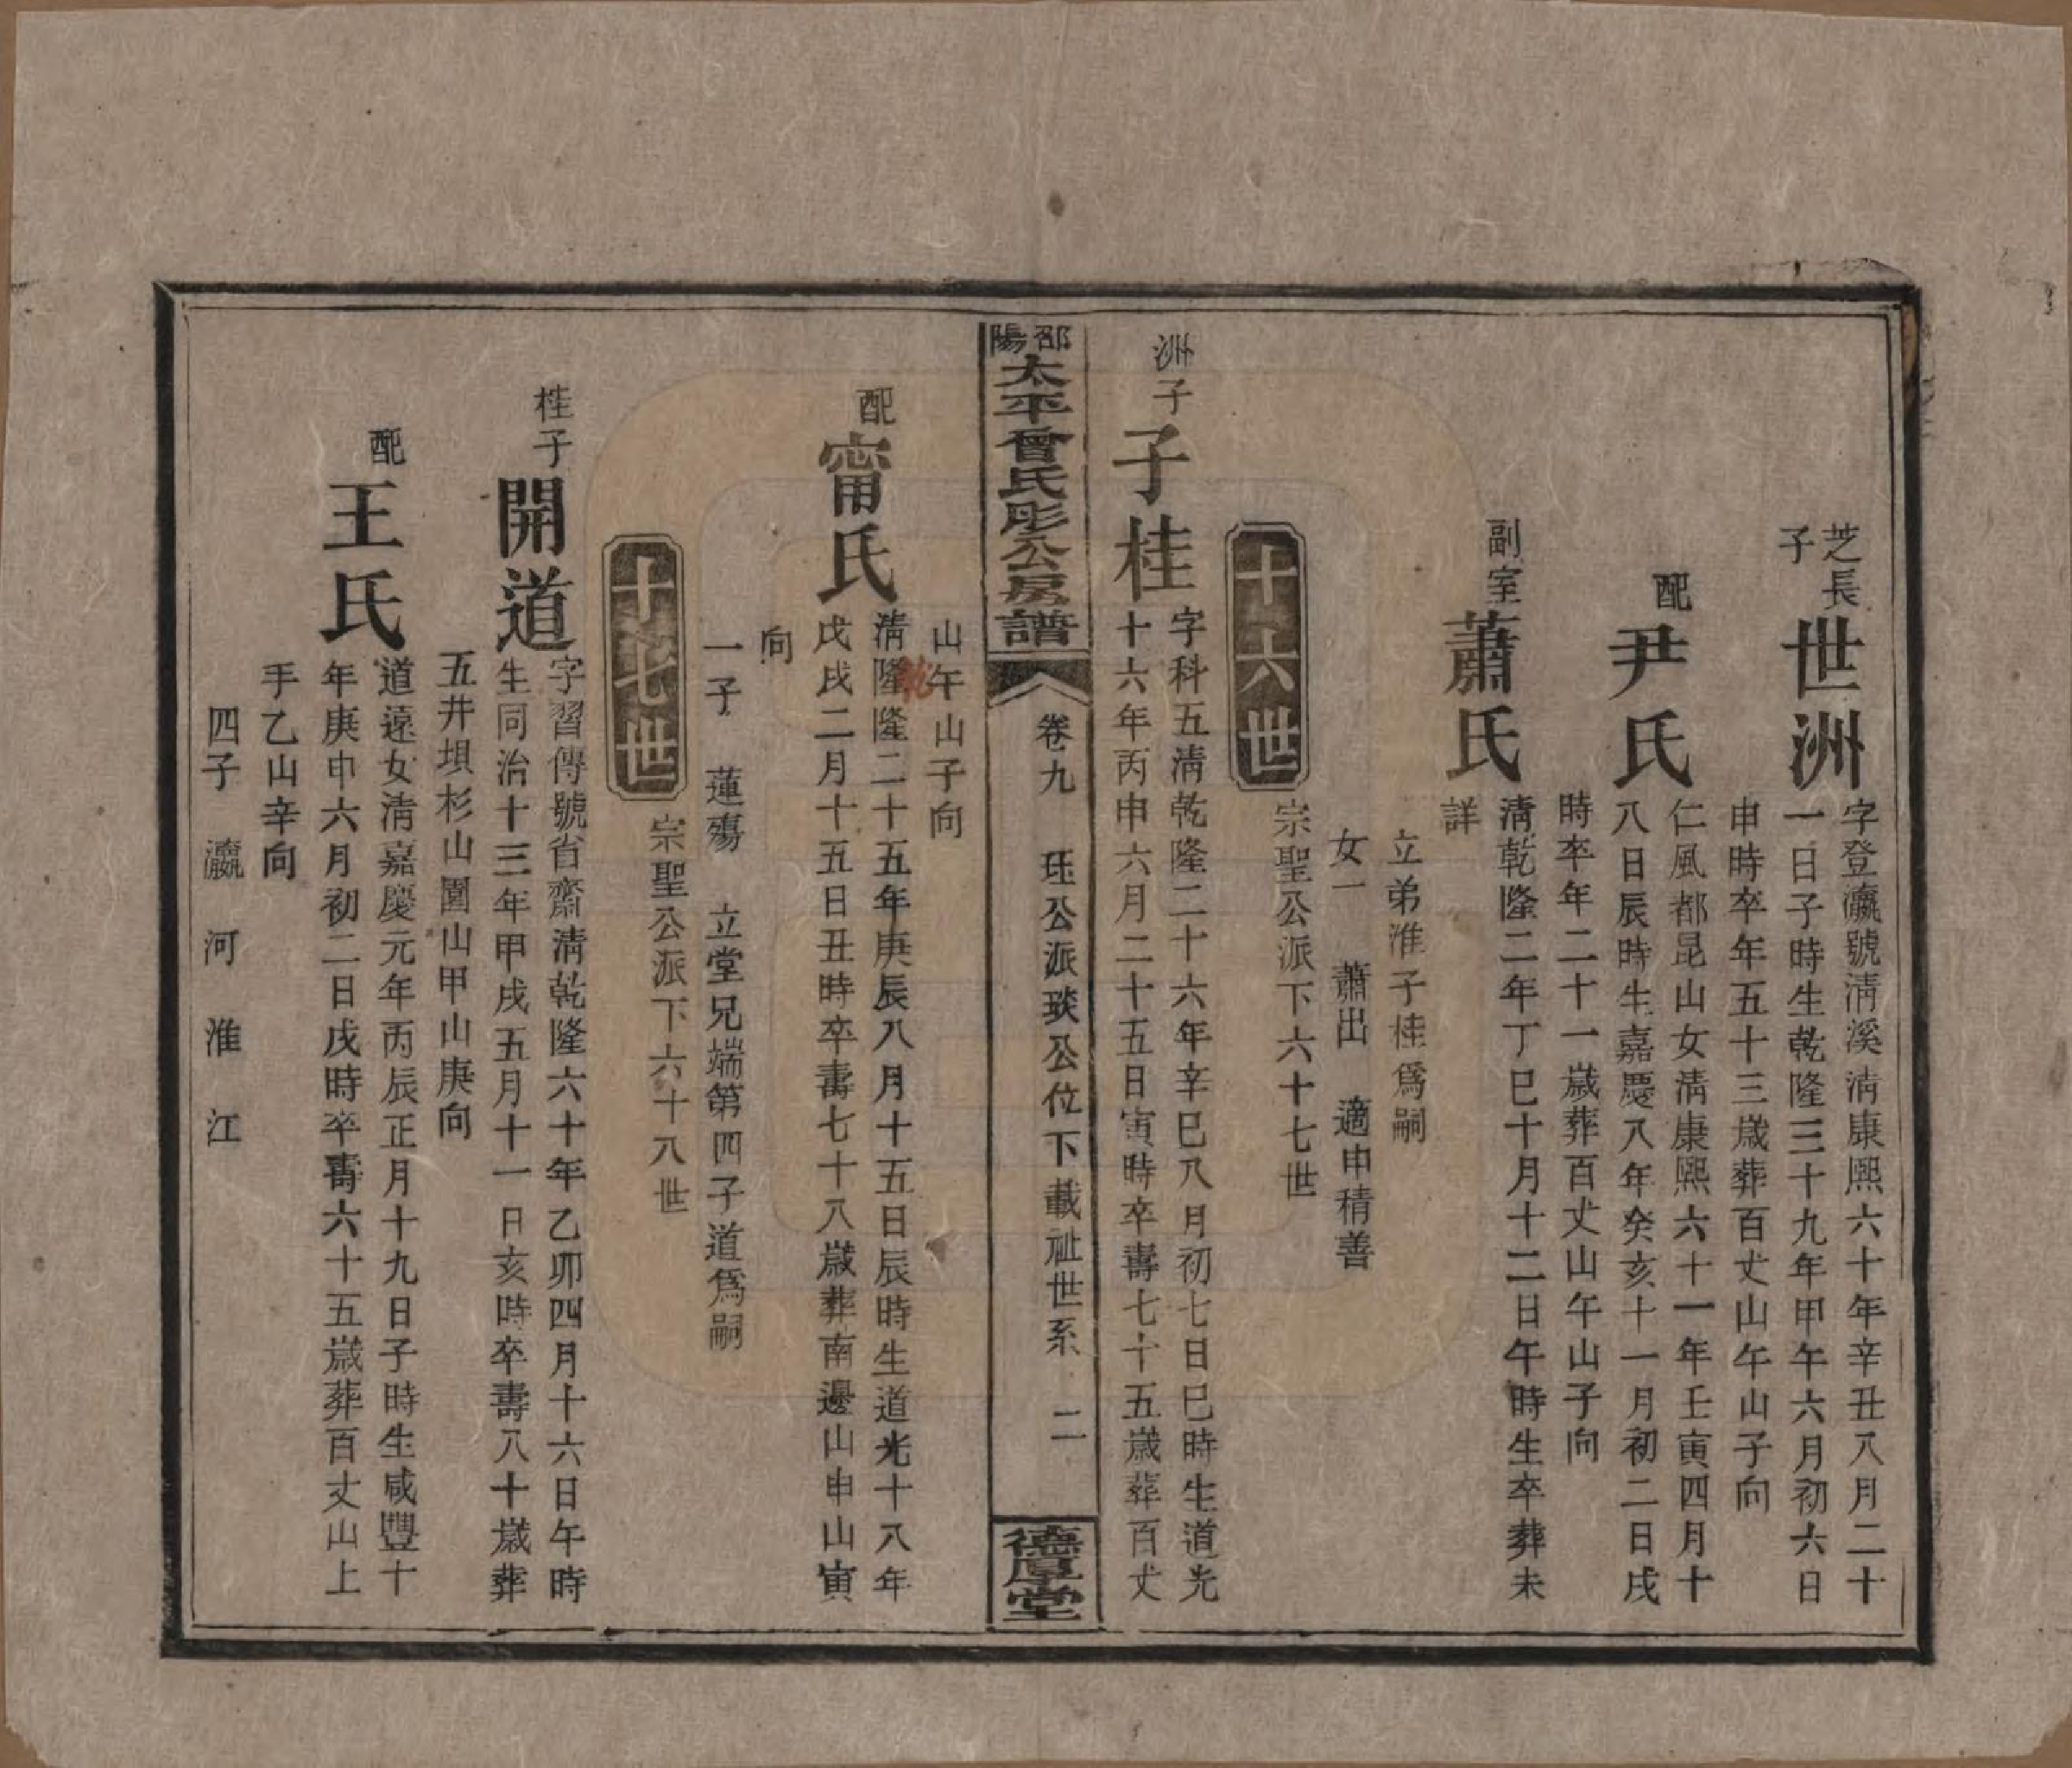 芝長子
世洲
字登瀛號清溪清康熙六十年辛丑八月二十
一日子時生乾隆三十九年甲午六月初六日
申時卒年五十三歲葬百丈山午山子向
配
尹氏
仁風都昆山女清康熙六十一年壬寅四月十
八日辰時生嘉慶八年癸亥十一月初二日戌
時卒年二十一歲葬百丈山午山子向
副室
蕭氏
清乾隆二年丁巳十月十二日午時生卒葬未
詳
立弟淮子桂爲嗣
女一 蕭出 適申積善
宗聖公派下六十七世
十六世
洲子
子桂
字科五清乾隆二十六年辛巳八月初七日巳時生道光
十六年丙申六月二十五日寅時卒壽七十五歲葬百丈
邵陽
太平曾氏彤公房譜
卷九 珏公派琰公位下載祉世系 二
德厚堂
山午山子向
配
甯氏
清隆隆二十五年庚辰八月十五日辰時生道光十八年
乾
戊戌二月十五日丑時卒壽七十八歲葬南邊山申山寅
向
一子 蓮殤 立堂兄端第四子道爲嗣
宗聖公派下六十八世
十七世
桂子
開道
字習傳號省齋清乾隆六十年乙卯四月十六日午時
生同治十三年甲戌五月十一日亥時卒壽八十歲葬
五井垻杉山圍山甲山庚向
配
王氏
道遠女清嘉慶元年丙辰正月十九日子時生咸豐十
年庚申六月初二日戌時卒壽六十五歲葬百丈山上
手乙山辛向
四子 瀛 河 淮 江